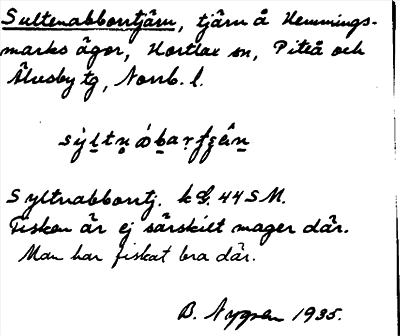 Sultenabborrtjärn, tjärn å Hemmings-
marks ägor, Hortlax sn, Piteå och
Älvsby tg, Norrb. l.
Syltnabborrtj. k Bl. 44 SM.
Fisken är ej särskilt mager där.
Man har fiskat bra där.
B. Nygren 1935.